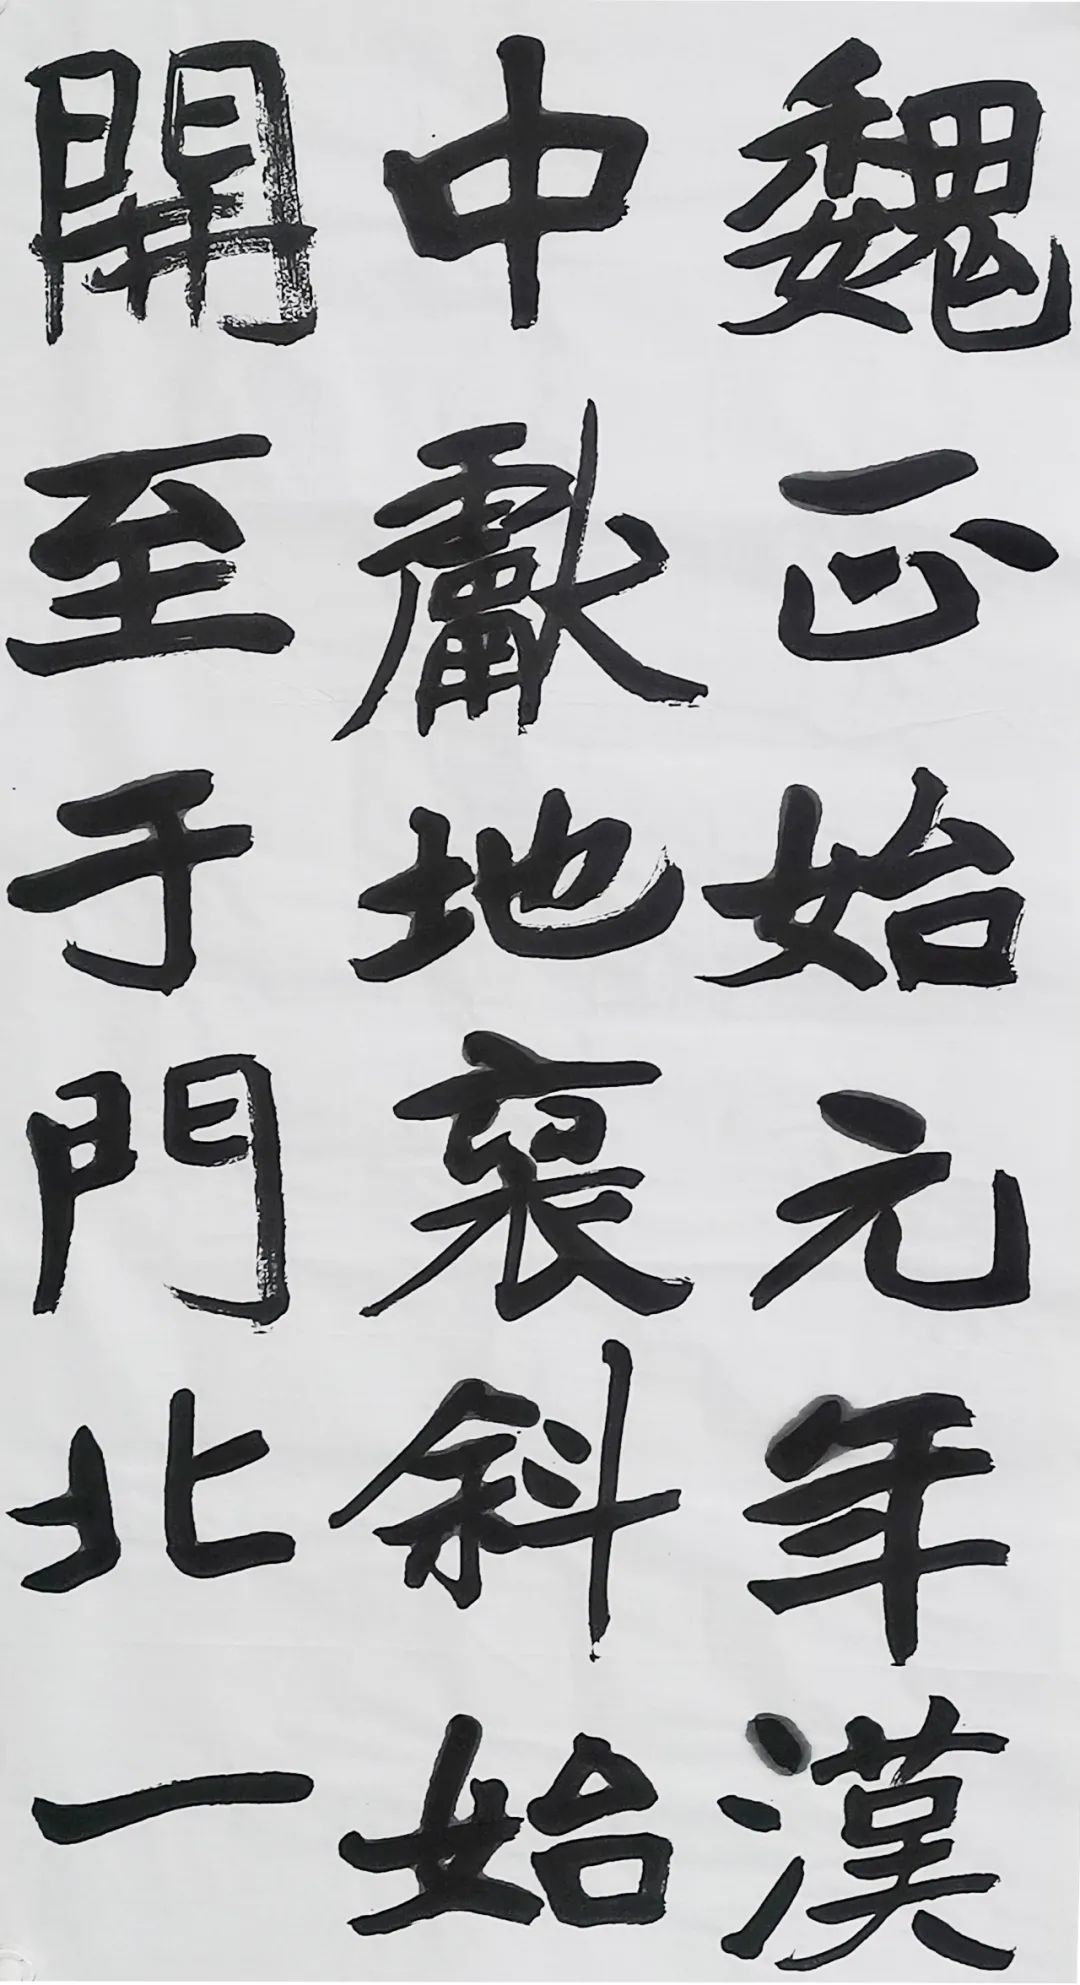 魏正始元年漢
中獻地褒斜始
開至于門北一